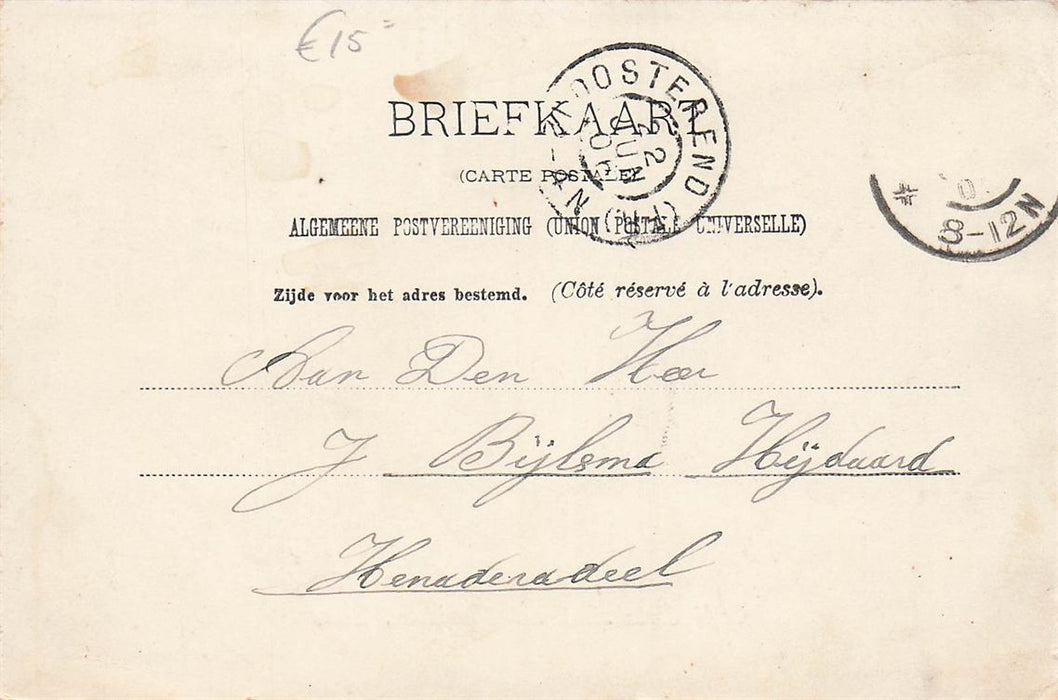 €15=
BRIEFKAART
(CARTE POSTALE)
ALGEMEENE POSTVEREENIGING (UNION POSTALE UNIVERSELLE)
Zijde voor het adres bestemd. (Côté réservé à l'adresse).
OOSTEREND
22
JUN
8-12N
Aan Den Heer
J Bijlsma Hijdaard
Henaderadeel